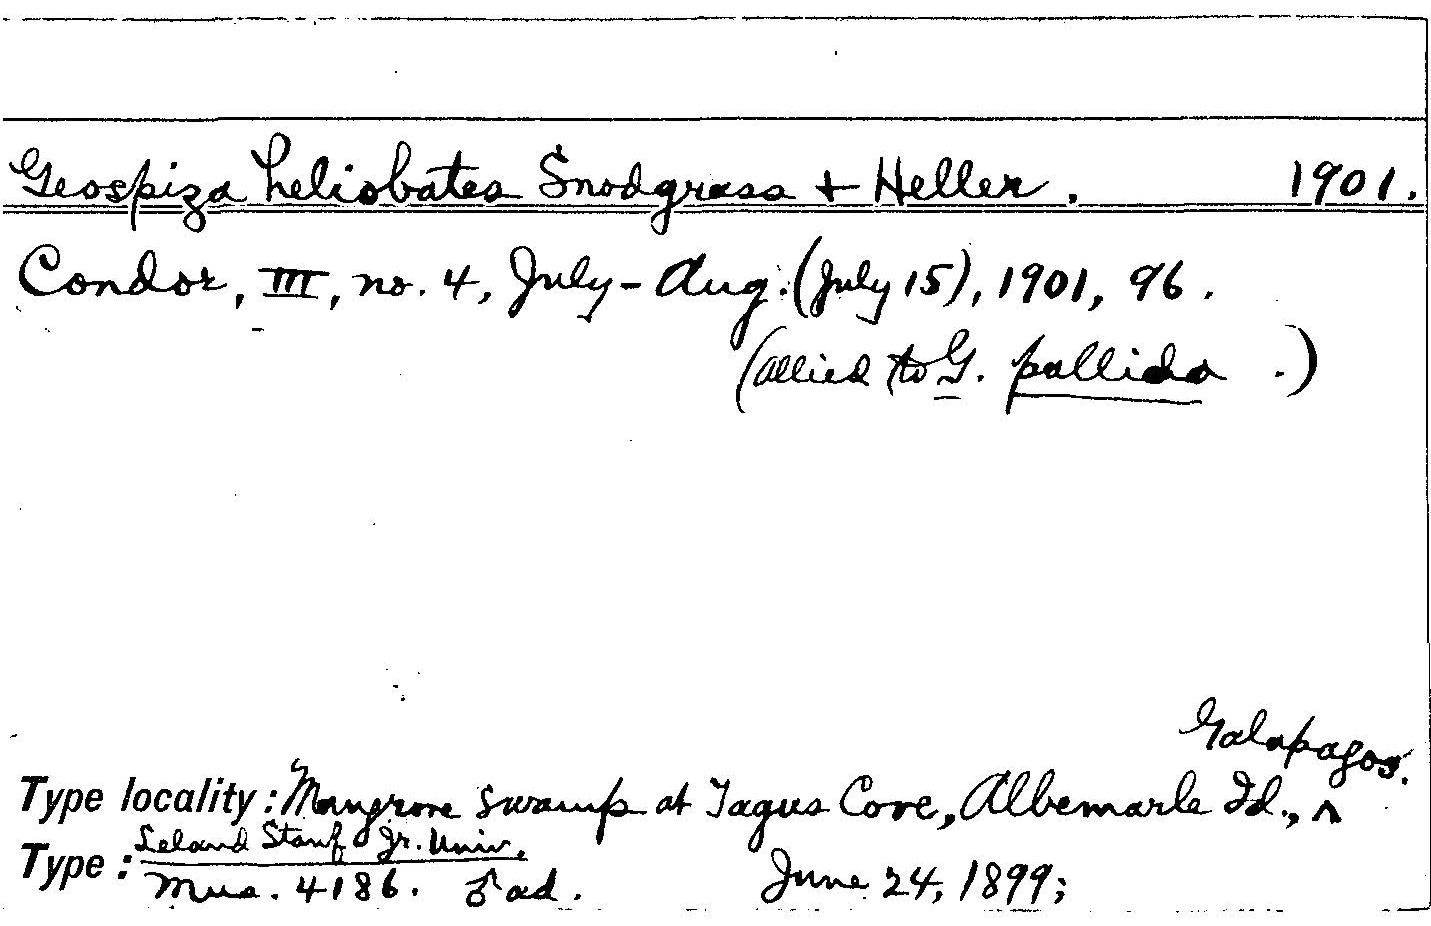 Geospiza heliobates Snodgrass + Heller. 1901.
Condor, III, no. 4, July-Aug. (July 15), 1901, 96.
(allied to G. pallida .)
Galapagos.
Type locality: Mangrove swamp at Tagus Cove, Albemarle Id., ^
Leland Stanf Jr. Univ.
Type: Mus. 4186. ♂ ad. June 24, 1899;